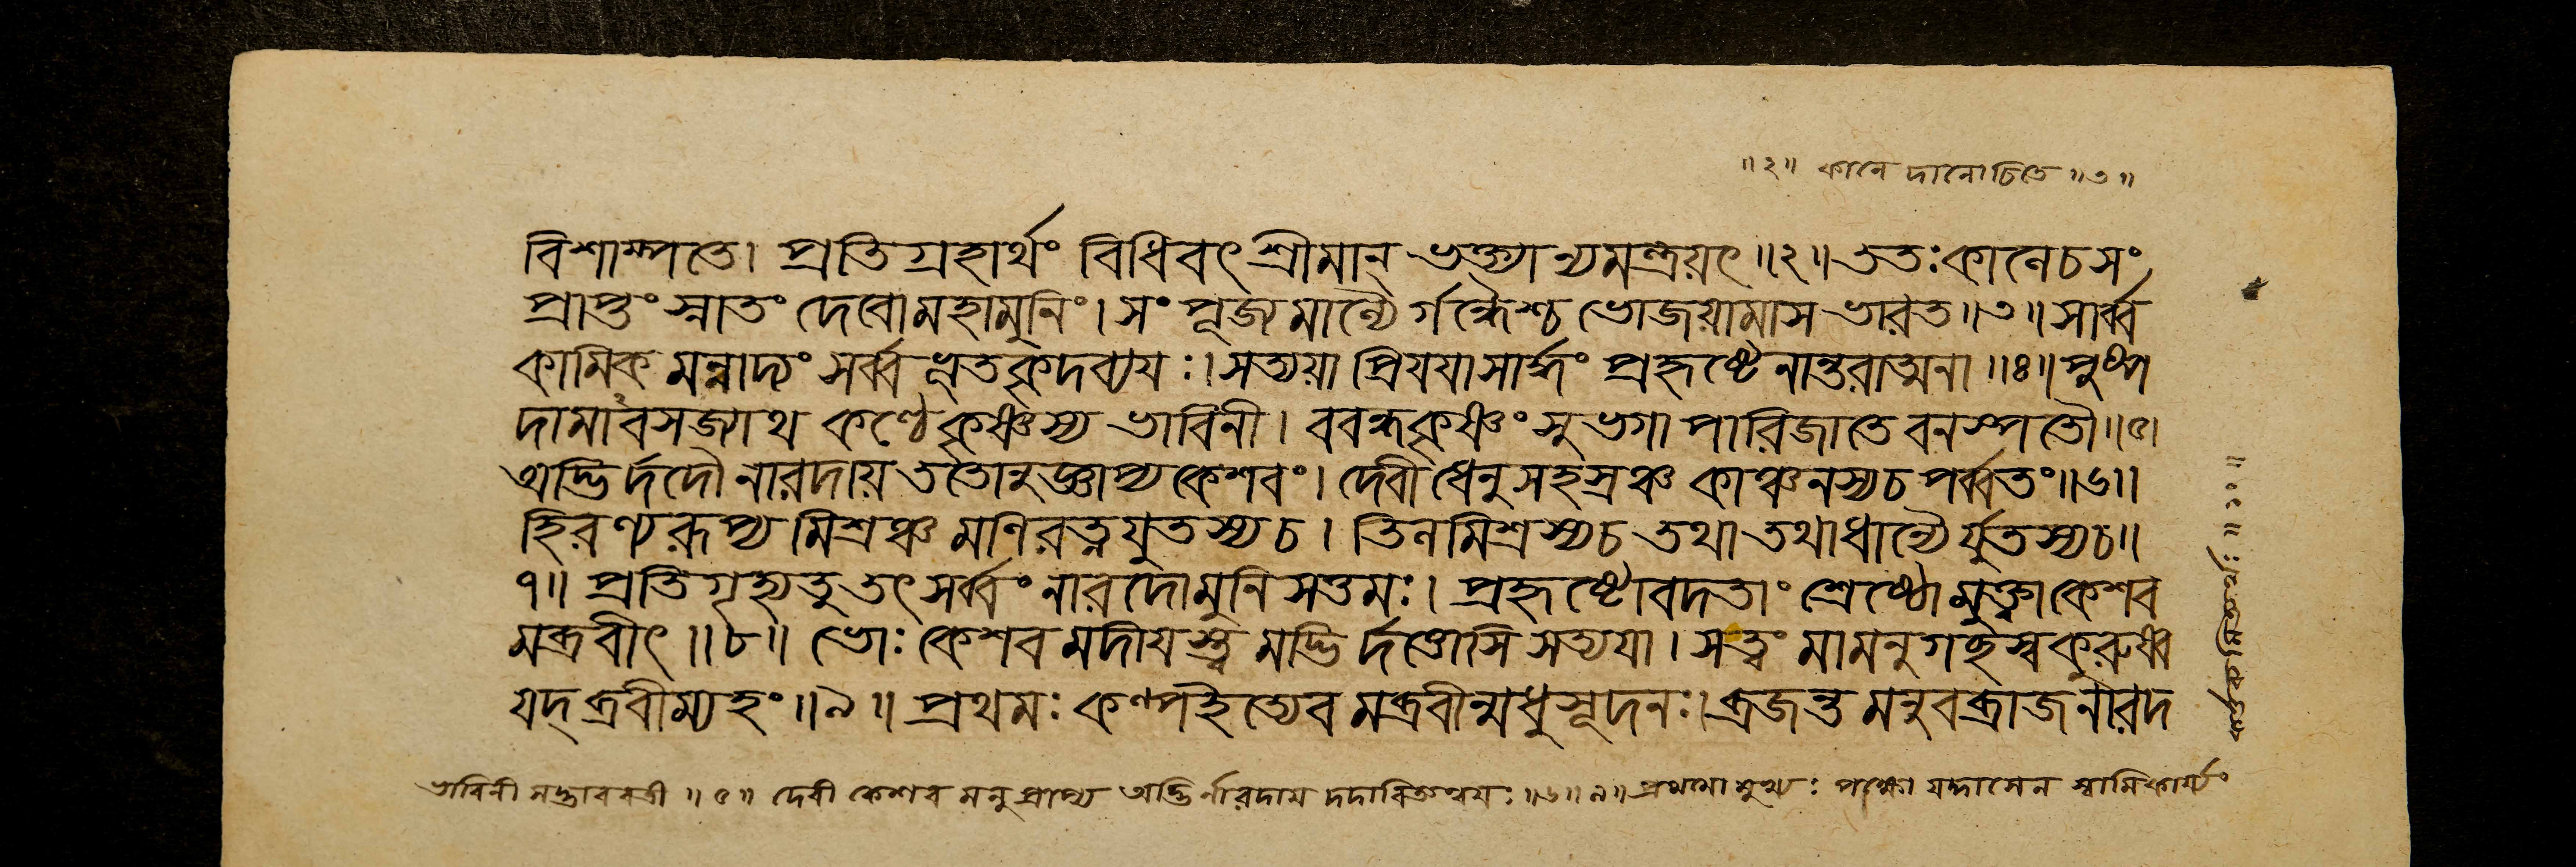 ॥২॥ কালে দানোচিতে ॥৩॥
বিশাম্পতে। প্রতিগ্রহার্থং বিধিবৎ শ্রীমান্ ভক্ত্যান্যমন্ত্রয়ৎ॥২॥ ততঃকালেচসং
প্রাপ্তং স্নাতং দেবোমহামুনিং। সংপূজ্যমাল্যৈর্গন্ধৈশ্চ ভোজয়ামাস ভারত॥৩॥ সার্ব্ব
কামিকমন্নাদ্যং সর্ব্বভূতকৃদব্যযঃ। সত্যয়া প্রিযযাসার্দ্ধং প্রহৃষ্টেনান্তরাত্মনা॥৪॥ পুষ্প
দামাবসজ্যাথ কণ্ঠেকৃষ্ণস্য ভাবিনী। ববন্ধকৃষ্ণং সুভগা পারিজাতে বনস্পতৌ॥৫।
অদ্ভির্দদৌ নারদায় ততোনুজ্ঞাপ্য কেশবং। দেবী ধেনুসহস্রঞ্চ কাঞ্চনস্যচ পর্ব্বতং॥৬॥
হিরণ্যরূপ্য মিশ্রঞ্চ মণিরত্নযুতস্য চ। তিলমিশ্রস্যচ তথা তথাধান্যৈর্যুতস্যচ॥
৭॥ প্রতিগৃহ্যতু তৎসর্ব্বং নারদোমুনিসত্তমঃ। প্রহৃষ্টোবদতাং শ্রেষ্ঠোমুক্ত্বাকেশব
মব্রবীৎ॥৮॥ ভোঃ কেশব মদীযস্ত্বমদ্ভির্দত্তোসি সত্যযা। সত্বং মামনুগচ্ছস্ব কুরুষ্ব
যদ্ব্রবীম্যহং॥৯॥ প্রথমঃ কল্পইত্যেব মব্রবীন্মধুসূদনঃ। ব্রজন্তমনুবব্রাজ নারদ
ভাবিনী সদ্ভাববতী ॥৫॥ দেবী কেশবমনুপ্রাপ্য অদ্ভির্নারদায দদাবিত্যন্বযঃ॥৬॥৯॥ প্রথমো মুখ্যঃ পক্ষো যদ্দাসেন স্বামিকার্য্যং
॥১০॥